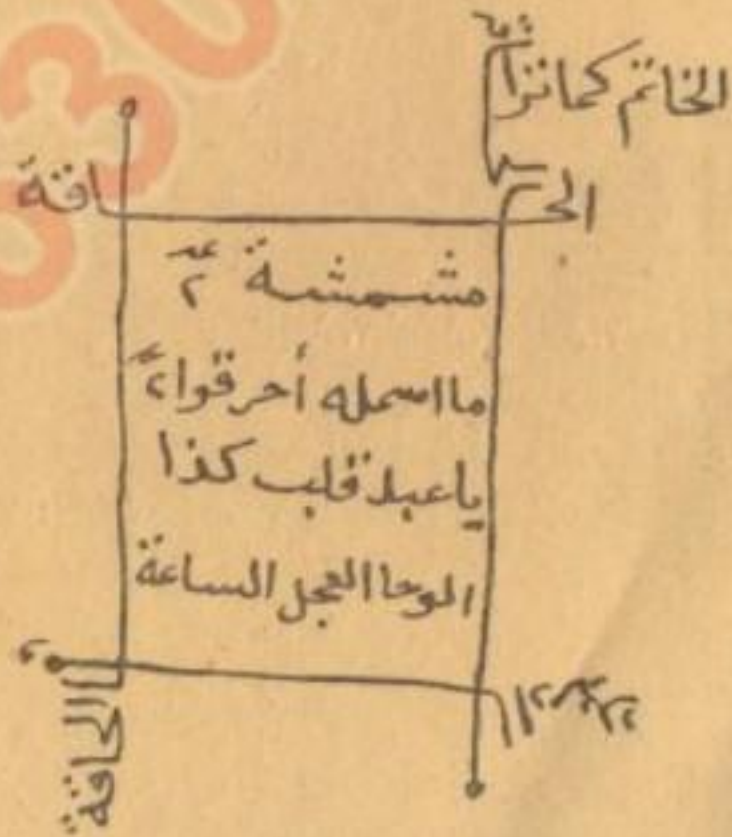 الخاتم كما ترى
الحاقة
مشمشة ٢
ما اسمله أحرقوا ٢
يا عبد قلب كذا
الوحا العجل الساعة
الحاقة